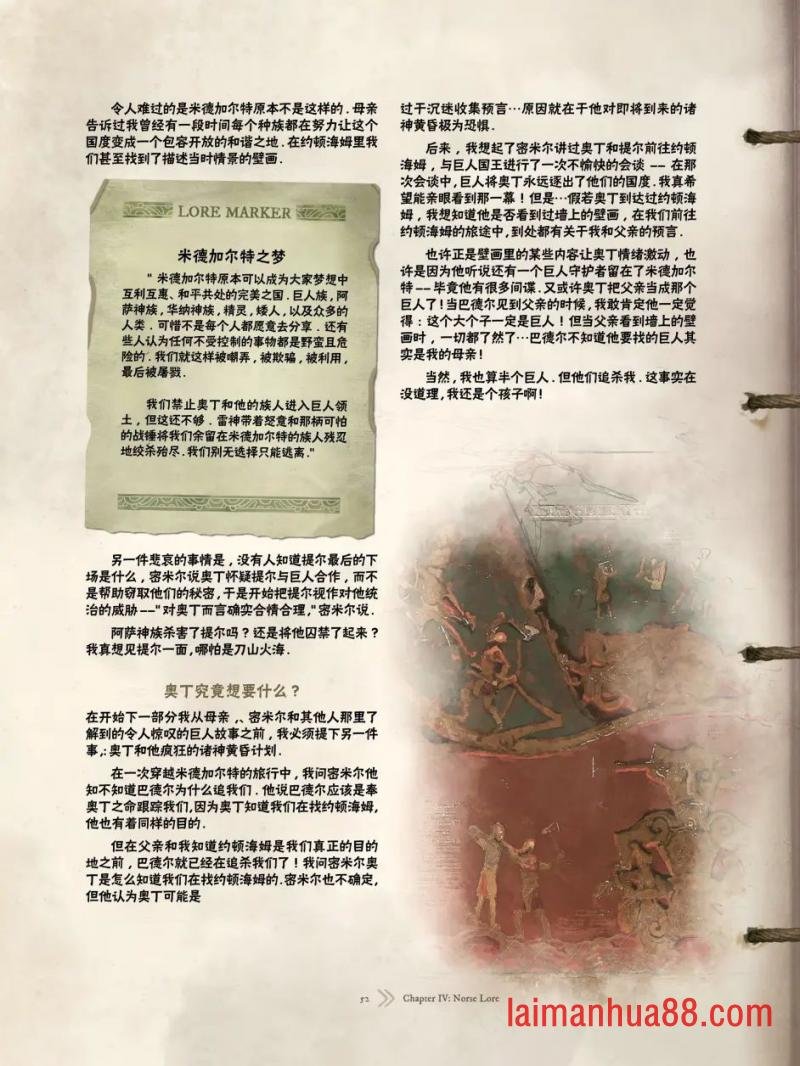 令人难过的是米德加尔特原本不是这样的.母亲
告诉过我曾经有一段时间每个种族都在努力让这个
国度变成一个包容开放的和谐之地.在约顿海姆里我
们甚至找到了描述当时情景的壁画.
LORE MARKER
米德加尔特之梦
" 米德加尔特原本可以成为大家梦想中
互利互惠、和平共处的完美之国.巨人族,阿
萨神族,华纳神族,精灵,矮人,以及众多的
人类.可惜不是每个人都愿意去分享.还有
些人认为任何不受控制的事物都是野蛮且危
险的.我们就这样被嘲弄,被欺骗,被利用,
最后被屠戮.
我们禁止奥丁和他的族人进入巨人领
土,但这还不够.雷神带着怒意和那柄可怕
的战锤将我们余留在米德加尔特的族人残忍
地绞杀殆尽.我们别无选择只能逃离."
另一件悲哀的事情是,没有人知道提尔最后的下
场是什么,密米尔说奥丁怀疑提尔与巨人合作,而不
是帮助窃取他们的秘密,于是开始把提尔视作对他统
治的威胁--"对奥丁而言确实合情合理,"密米尔说.
阿萨神族杀害了提尔吗?还是将他囚禁了起来?
我真想见提尔一面,哪怕是刀山火海.
奥丁究竟想要什么?
在开始下一部分我从母亲,、密米尔和其他人那里了
解到的令人惊叹的巨人故事之前,我必须提下另一件
事,:奥丁和他疯狂的诸神黄昏计划.
在一次穿越米德加尔特的旅行中,我问密米尔他
知不知道巴德尔为什么追我们.他说巴德尔应该是奉
奥丁之命跟踪我们,因为奥丁知道我们在找约顿海姆,
他也有着同样的目的.
但在父亲和我知道约顿海姆是我们真正的目的
地之前,巴德尔就已经在追杀我们了!我问密米尔奥
丁是怎么知道我们在找约顿海姆的.密米尔也不确定,
但他认为奥丁可能是
过于沉迷收集预言…原因就在于他对即将到来的诸
神黄昏极为恐惧.
后来,我想起了密米尔讲过奥丁和提尔前往约顿
海姆,与巨人国王进行了一次不愉快的会谈 -- 在那
次会谈中,巨人将奥丁永远逐出了他们的国度.我真希
望能亲眼看到那一幕!但是…假若奥丁到达过约顿海
姆,我想知道他是否看到过墙上的壁画,在我们前往
约顿海姆的旅途中,到处都有关于我和父亲的预言.
也许正是壁画里的某些内容让奥丁情绪激动,也
许是因为他听说还有一个巨人守护者留在了米德加尔
特--毕竟他有很多间谍.又或许奥丁把父亲当成那个
巨人了!当巴德尔见到父亲的时候,我敢肯定他一定觉
得:这个大个子一定是巨人!但当父亲看到墙上的壁
画时,一切都了然了…巴德尔不知道他要找的巨人其
实是我的母亲!
当然,我也算半个巨人.但他们追杀我.这事实在
没道理,我还是个孩子啊!
52
Chapter IV: Norse Lore
laimanhua88.com